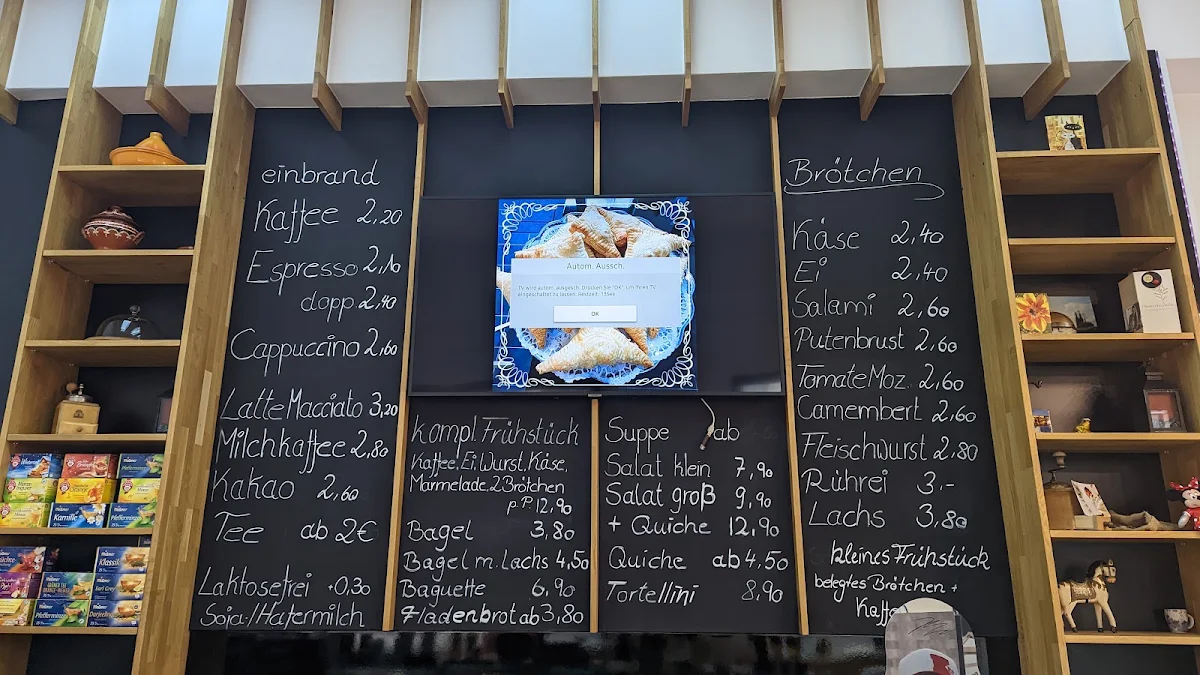 einbrand
Kaffee 2,20
Espresso 2,10
dopp. 2,40
Cappuccino 2,60
Latte Macciato 3,20
Milchkaffee 2,80
Kakao 2,60
Tee ab 2€
Laktosefrei +0,30
Soja-/Hafermilch
Autom. Aussch.
TV wird autom. ausgesch. Drücken Sie "OK", um Ihren TV
eingeschaltet zu lassen. Restzeit:
OK
kompl. Frühstück
Kaffee, Ei, Wurst, Käse,
Marmelade, 2 Brötchen
p.P. 12,90
Bagel 3,80
Bagel m. Lachs 4,50
Baguette 6,90
Fladenbrot ab 3,80
Suppe ab
Salat klein 7,90
Salat groß 9,90
+ Quiche 12,90
Quiche ab 4,50
Tortellini 8,90
Brötchen
Käse 2,40
Ei 2,40
Salami 2,60
Putenbrust 2,60
Tomate Moz. 2,60
Camembert 2,60
Fleischwurst 2,80
Rührei 3,-
Lachs 3,80
kleines Frühstück
belegtes Brötchen +
Kaffe
Kamille
Pfefferminze